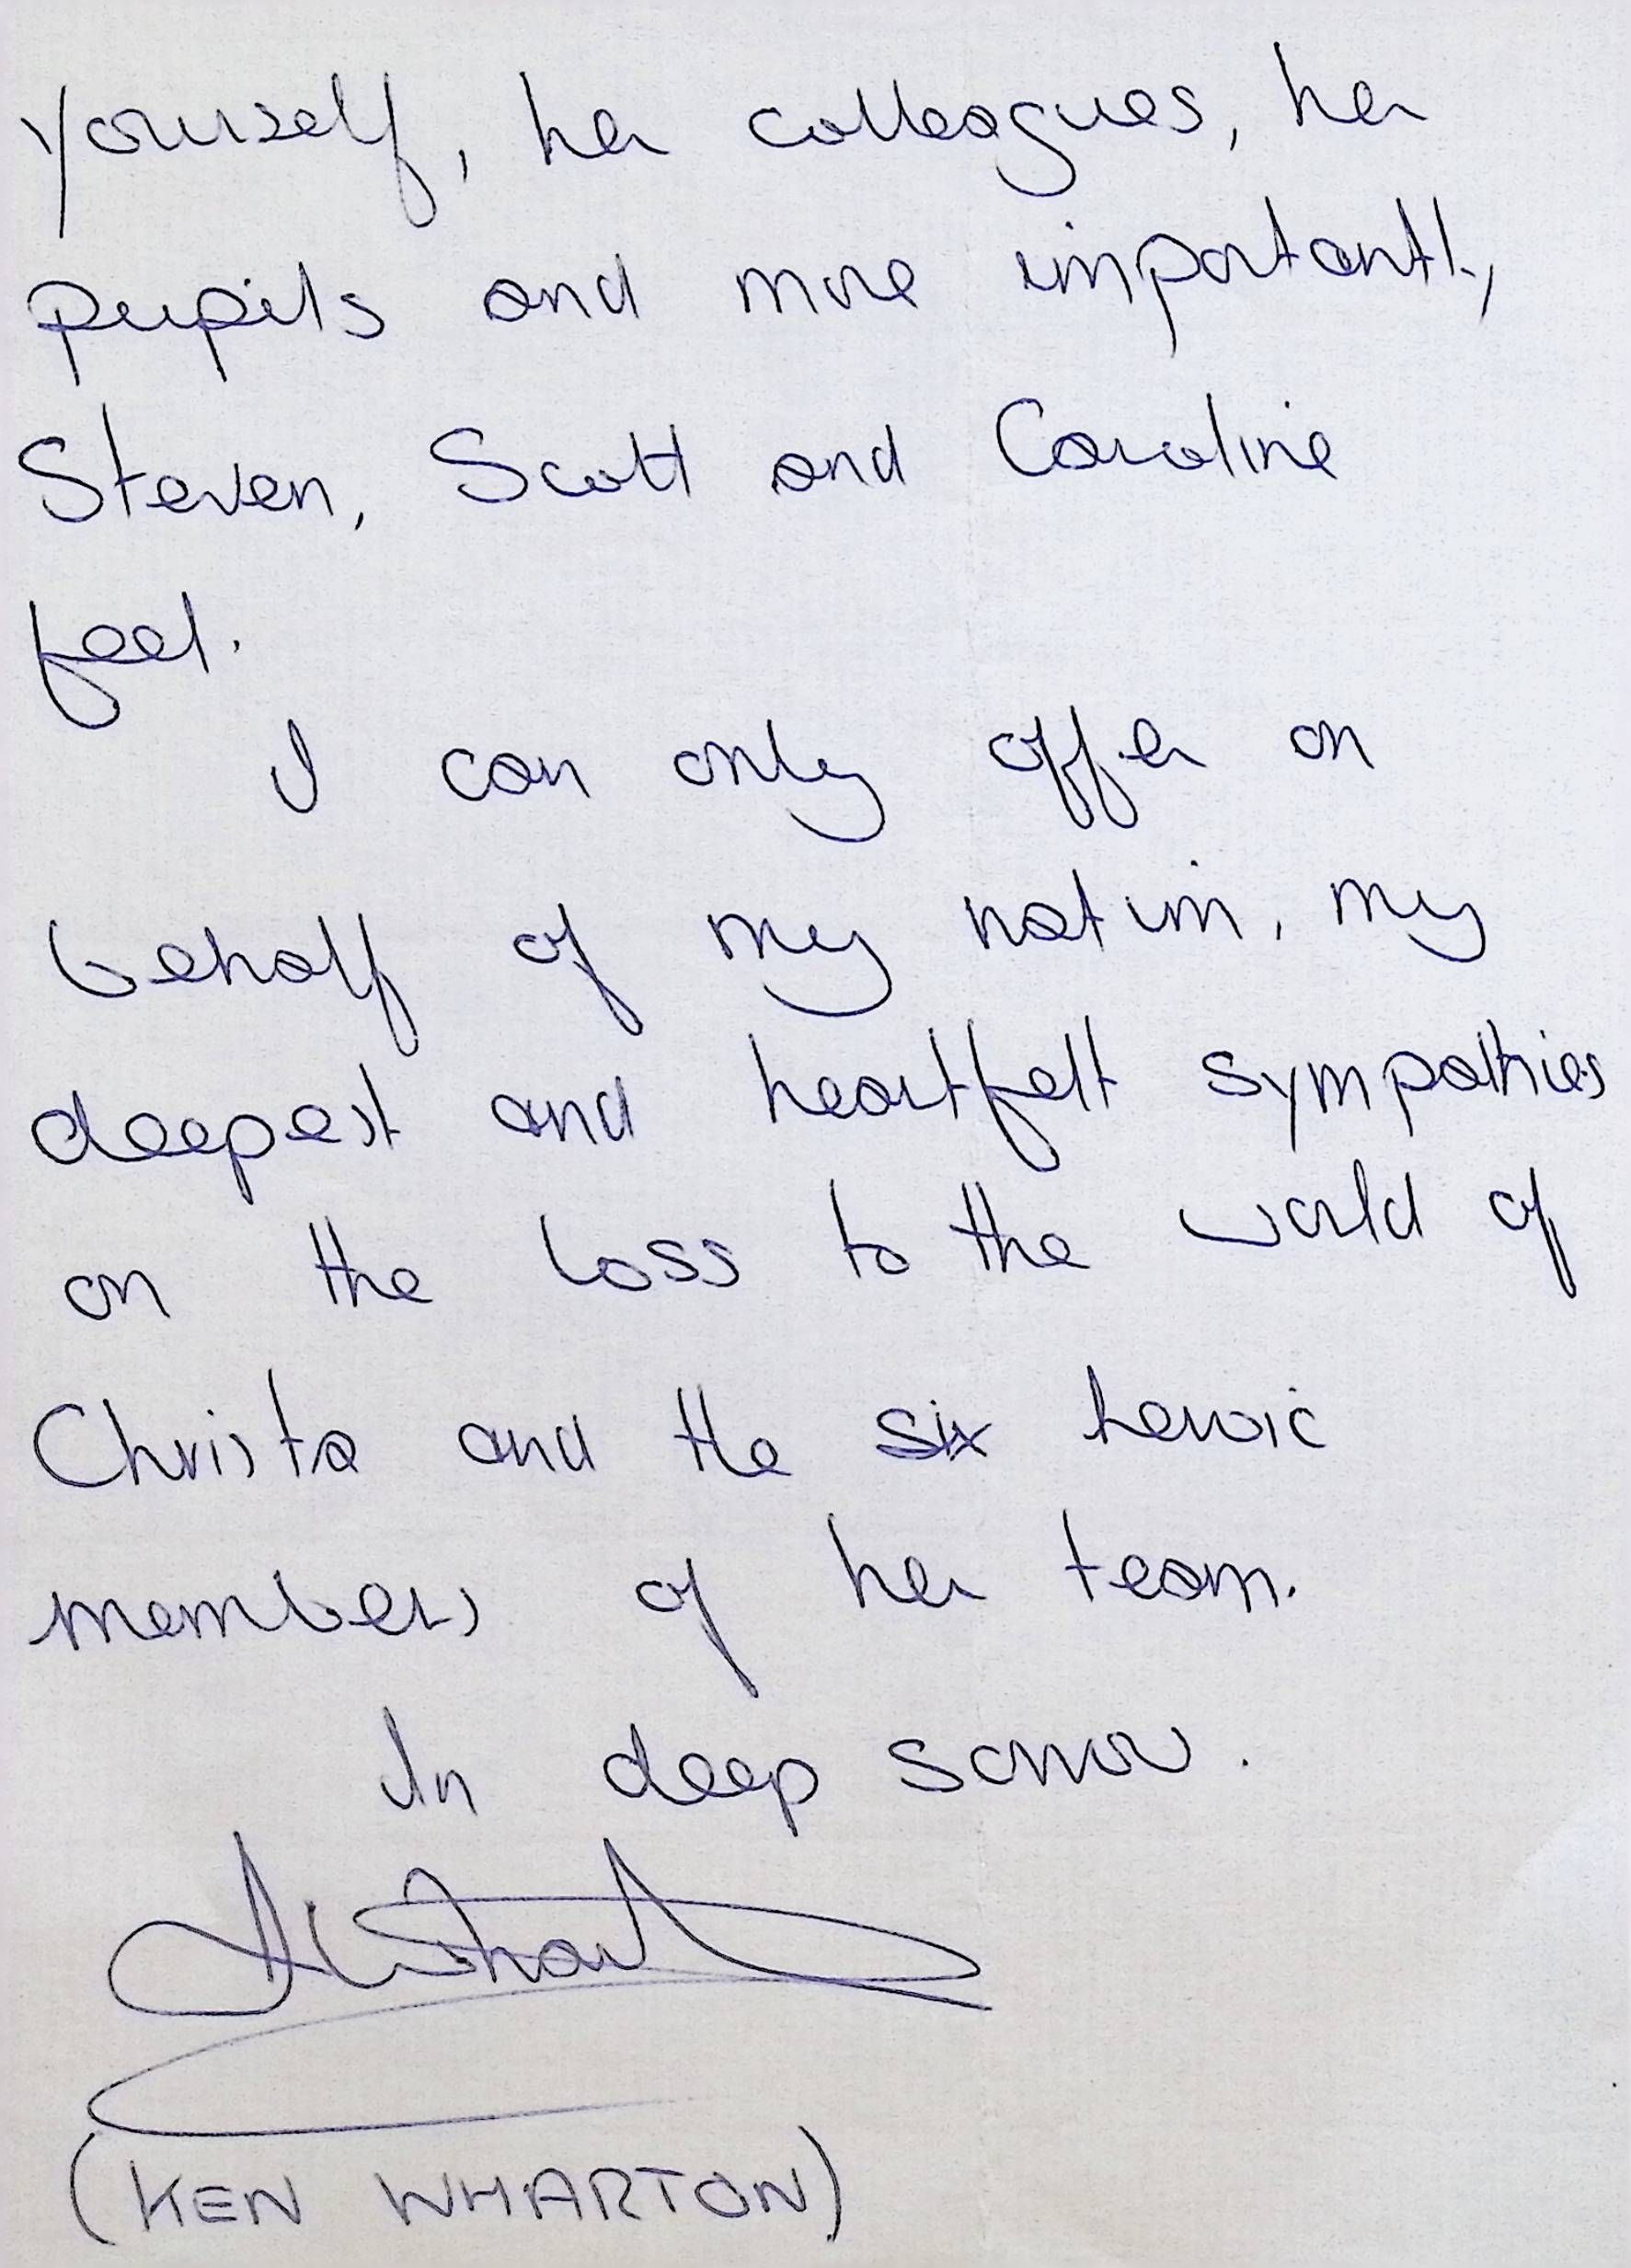 yourself, her colleagues, her
pupils and more importantly,
Steven, Scott and Caroline
feel.
I can only offer on
behalf of my nation, my
deepest and heartfelt sympathies
on the loss to the world of
Christa and the six heroic
members of her team.
In deep sorrow.
KWharton
(KEN WHARTON)